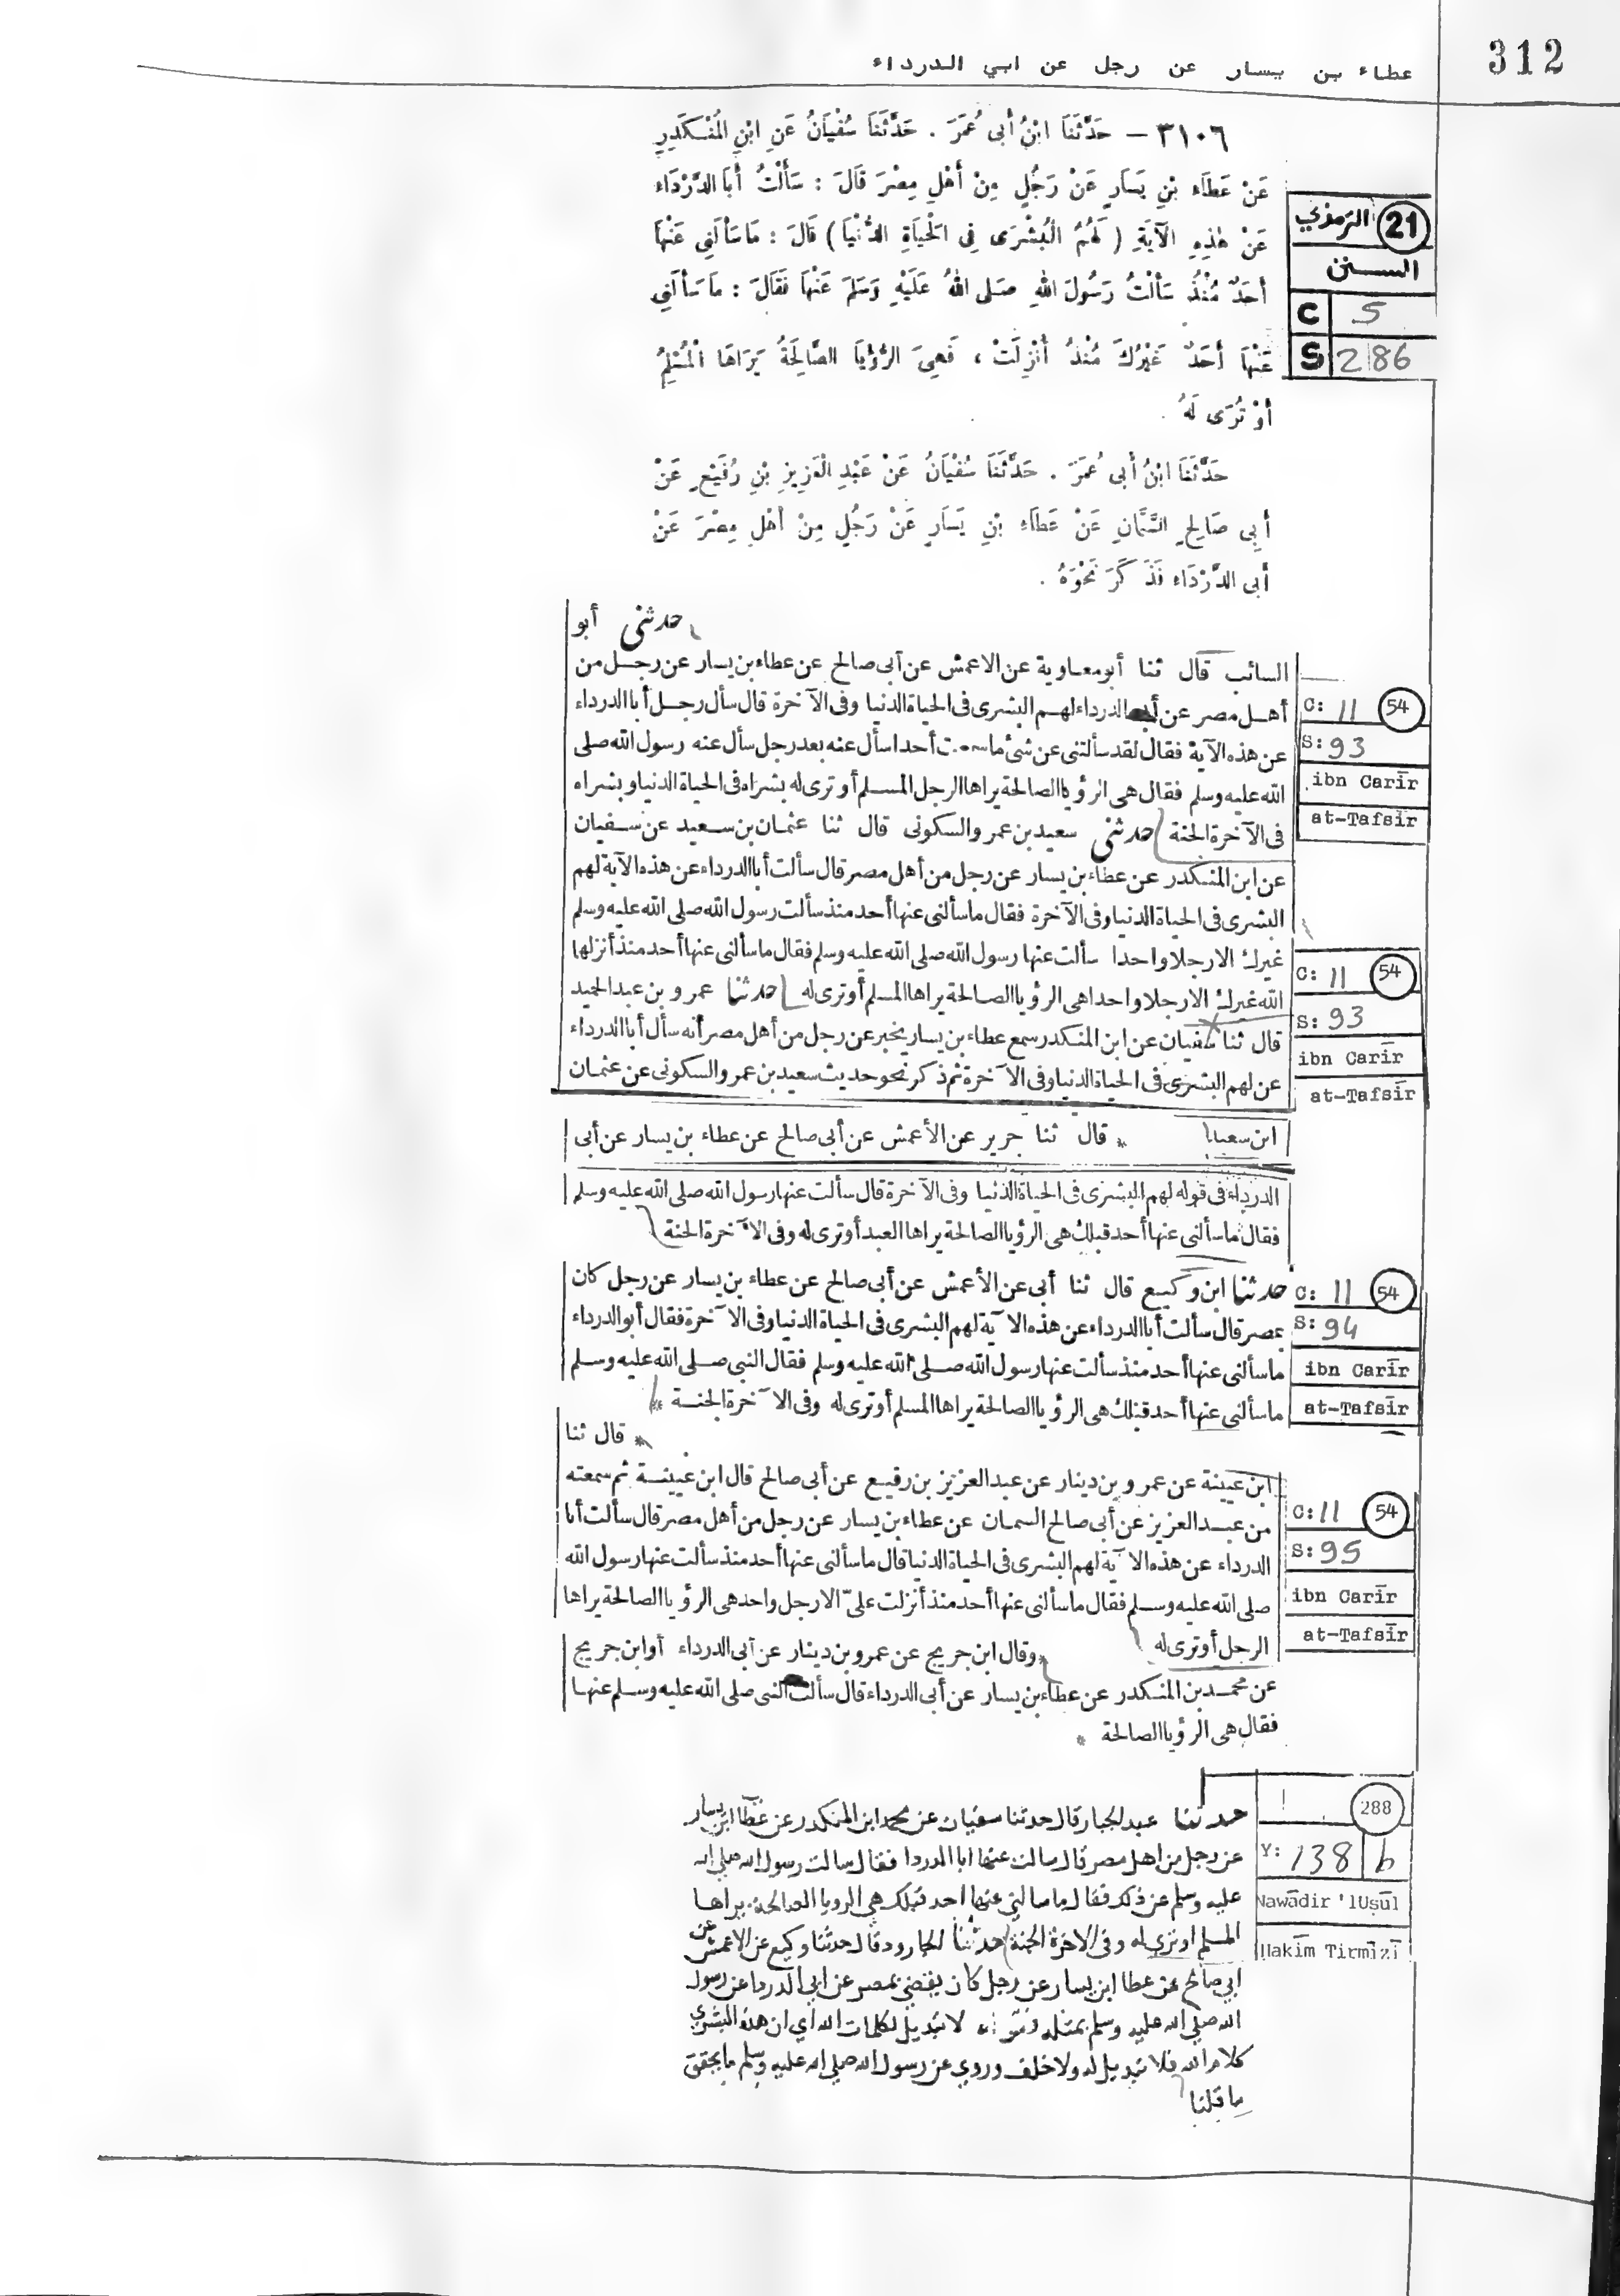 312
عطاء بن يسار عن رجل عن ابي الدرداء
٣١٠٦ – حَدَّثَنَا ابْنُ أَبِى عُمَرَ . حَدَّثَنَا سُفْيَانُ عَنِ ابْنِ الْمُنْكَدِرِ
عَنْ عَطَاءِ بْنِ يَسَارٍ عَنْ رَجُلٍ مِنْ أَهْلِ مِصْرَ قَالَ : سَأَلْتُ أَبَا الدَّرْدَاءِ
عَنْ هٰذِهِ الْآيَةِ ( لَهُمُ الْبُشْرَى فِى الْحَيَاةِ الدُّنْيَا ) قَالَ : مَا سَأَلَنِى عَنْهَا
أَحَدٌ مُنْذُ سَأَلْتُ رَسُولَ اللهِ صَلَى اللهُ عَلَيْهِ وَسَلَمَ عَنْهَا فَقَالَ : مَا سَأَلَنِى
عَنْهَا أَحَدٌ غَيْرُكَ مُنْذُ أُنْزِلَتْ ، فَهِىَ الرُّؤْيَا الصَّالِحَةُ يَرَاهَا الْمُسْلِمُ
أَوْ تُرَى لَهُ .
21 الترمذي
السنن
C 5
S 2186
حَدَّثَنَا ابْنُ أَبِى عُمَرَ . حَدَّثَنَا سُفْيَانُ عَنْ عَبْدِ الْعَزِيزِ بْنِ رُفَيْعٍ عَنْ
أَبِى صَالِحٍ السَّمَّانِ عَنْ عَطَاءِ بْنِ يَسَارٍ عَنْ رَجُلٍ مِنْ أَهْلِ مِصْرَ عَنْ
أَبِى الدَّرْدَاءِ فَذَكَرَ نَحْوَهُ .
حدثنى أبو
السائب قال ثنا أبو معاوية عن الاعمش عن أبى صالح عن عطاء بن يسار عن رجل من
أهل مصر عن أبى الدرداء لهم البشرى فى الحياة الدنيا وفى الآخرة قال سأل رجل أبا الدرداء
عن هذه الآية فقال لقد سألتنى عن شئ ما سمعت أحدا سأل عنه بعد رجل سأل عنه رسول الله صلى
الله عليه وسلم فقال هى الرؤيا الصالحة يراها الرجل المسلم أو ترى له بشراه فى الحياة الدنيا وبشراه
فى الآخرة الجنة حدثنى سعيد بن عمرو السكونى قال ثنا عثمان بن سعيد عن سفيان
عن ابن المنكدر عن عطاء بن يسار عن رجل من أهل مصر قال سألت أبا الدرداء عن هذه الآية لهم
البشرى فى الحياة الدنيا وفى الآخرة فقال ما سألنى عنها أحد منذ سألت رسول الله صلى الله عليه وسلم
غيرك الا رجلا واحدا سألت عنها رسول الله صلى الله عليه وسلم فقال ما سألنى عنها أحد منذ أنزلها
الله غيرك الا رجلا واحدا هى الرؤيا الصالحة يراها المسلم أو ترى له حدثنا عمرو بن عبد الحميد
قال ثنا سفيان عن ابن المنكدر سمع عطاء بن يسار يخبر عن رجل من أهل مصر أنه سأل أبا الدرداء
عن لهم البشرى فى الحياة الدنيا وفى الآخرة ثم ذكر نحو حديث سعيد بن عمرو السكونى عن عثمان
ابن سعيد * قال ثنا جرير عن الأعمش عن أبى صالح عن عطاء بن يسار عن أبى
الدرداء فى قوله لهم البشرى فى الحياة الدنيا وفى الآخرة قال سألت عنها رسول الله صلى الله عليه وسلم
فقال ما سألنى عنها أحد قبلك هى الرؤيا الصالحة يراها العبد أو ترى له وفى الآخرة الجنة
C: 11 54
S: 93
ibn Carīr
at-Tafsīr
C: 11 54
S: 93
ibn Carīr
at-Tafsīr
حدثنا ابن وكيع قال ثنا أبى عن الأعمش عن أبى صالح عن عطاء بن يسار عن رجل كان
بمصر قال سألت أبا الدرداء عن هذه الآية لهم البشرى فى الحياة الدنيا وفى الآخرة فقال أبو الدرداء
ما سألنى عنها أحد منذ سألت عنها رسول الله صلى الله عليه وسلم فقال النبى صلى الله عليه وسلم
ما سألنى عنها أحد قبلك هى الرؤيا الصالحة يراها المسلم أو ترى له وفى الآخرة الجنة *
C: 11 54
S: 94
ibn Carīr
at-Tafsīr
* قال ثنا
ابن عيينة عن عمرو بن دينار عن عبد العزيز بن رفيع عن أبى صالح قال ابن عيينة ثم سمعته
من عبد العزيز عن أبى صالح السمان عن عطاء بن يسار عن رجل من أهل مصر قال سألت أبا
الدرداء عن هذه الآية لهم البشرى فى الحياة الدنيا قال ما سألنى عنها أحد منذ سألت عنها رسول الله
صلى الله عليه وسلم فقال ما سألنى عنها أحد منذ أنزلت علىّ الا رجل واحد هى الرؤيا الصالحة يراها
الرجل أو ترى له * وقال ابن جريج عن عمرو بن دينار عن أبى الدرداء أو ابن جريج
عن محمد بن المنكدر عن عطاء بن يسار عن أبى الدرداء قال سألت النبى صلى الله عليه وسلم عنها
فقال هى الرؤيا الصالحة *
C: 11 54
S: 95
ibn Carīr
at-Tafsīr
حدثنا عبد الجبار قال حدثنا سفيان عن محمد ابن المنكدر عن عطا ابن يسار
عن رجل من اهل مصر قال سالت عنها ابا الدردا فقال سالت رسول الله صلى الله
عليه وسلم عن ذلك فقال ما سالني عنها احد قبلك هي الرويا الصالحة يراها
المسلم او ترى له وفي الاخرة الجنة حدثنا الجارود قال حدثنا وكيع عن الاعمش عن
ابي صالح عن عطا ابن يسار عن رجل كان يقضي بمصر عن ابي الدردا عن رسول
الله صلى الله عليه وسلم بمثله لا تبديل لكلمات الله اي ان هذه البشرى
كلام الله فلا تبديل له ولا خلف وروي عن رسول الله صلى الله عليه وسلم ما يحقق
ما قلنا
288
Y: 138 b
Nawādir 'lUṣūl
Hakīm Tirmīzī